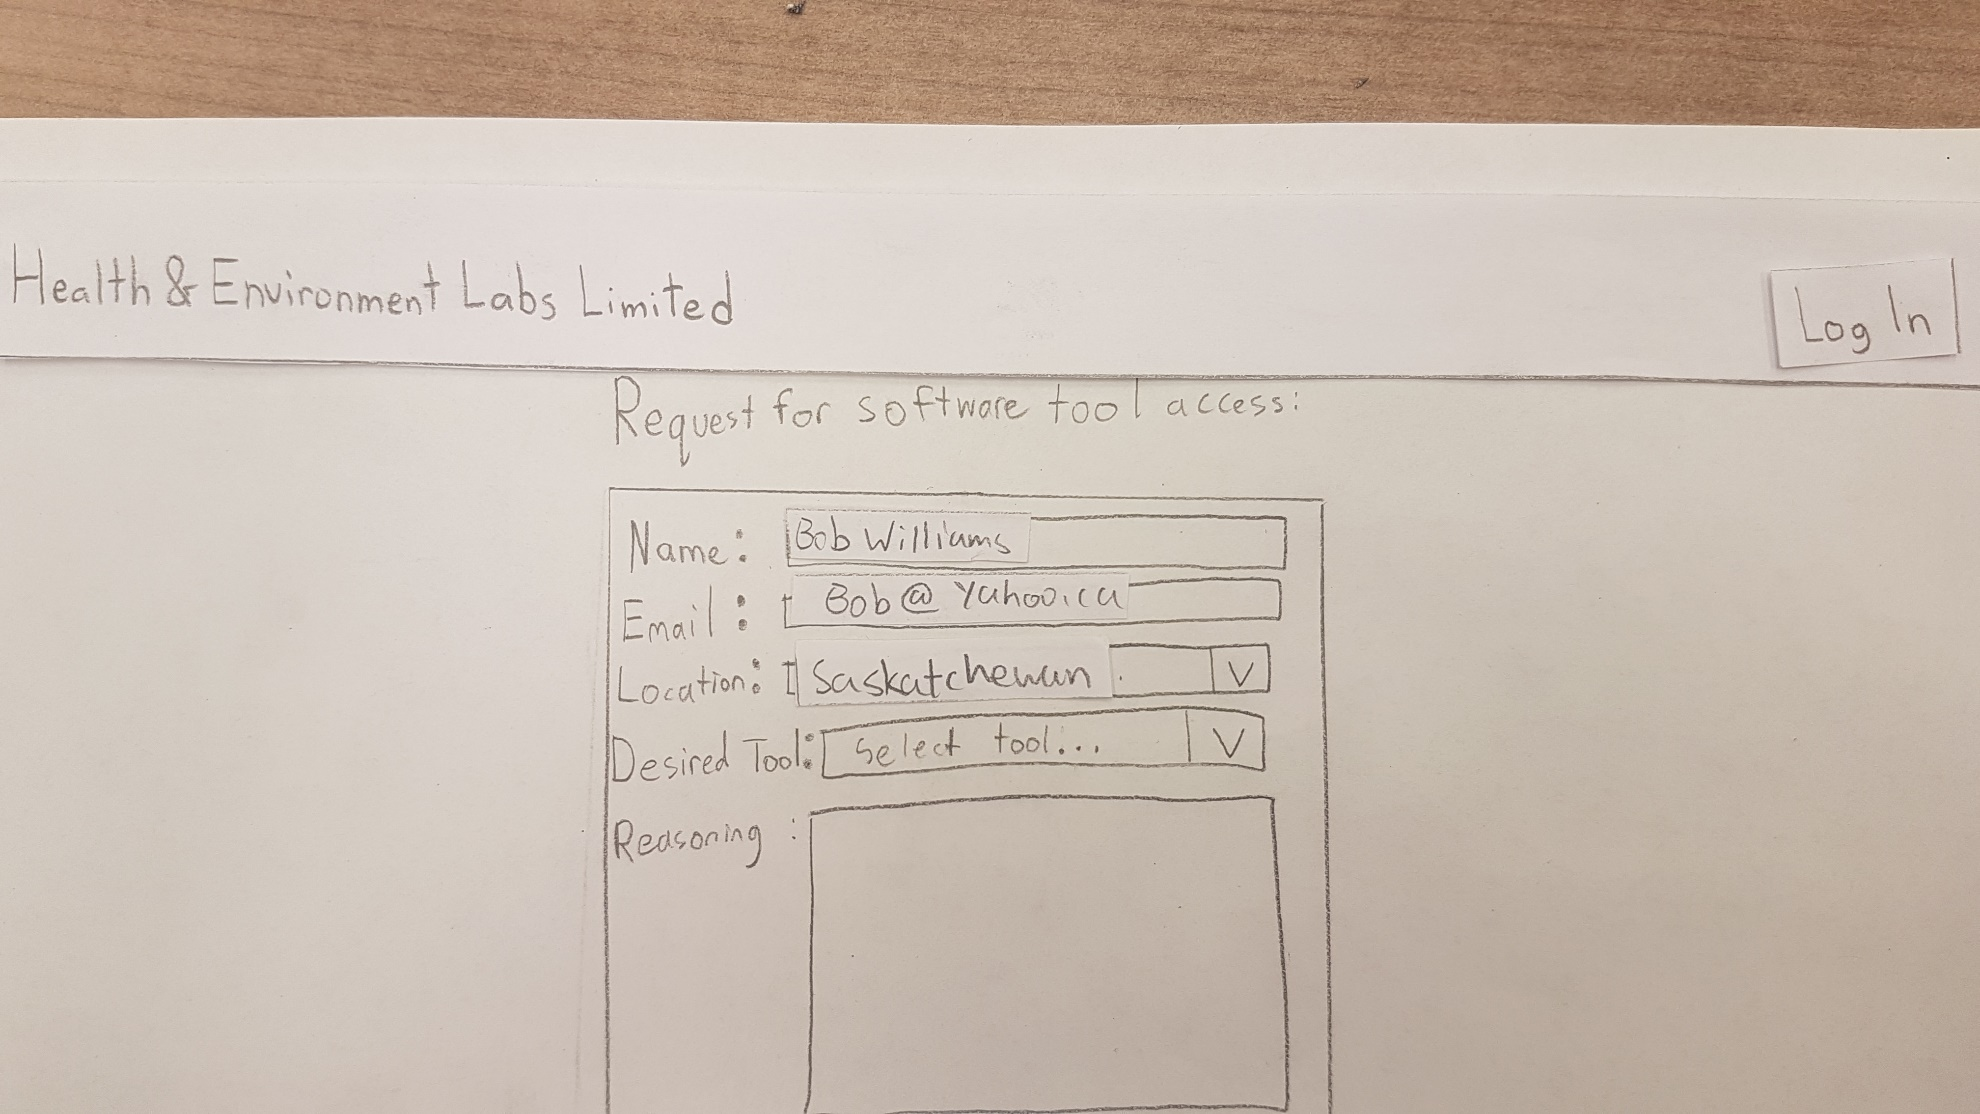 Health & Environment Labs Limited
Log In
Request for software tool access:
Name: Bob Williams
Email: Bob@Yahoo.ca
Location: Saskatchewan V
Desired Tool: Select tool... V
Reasoning :